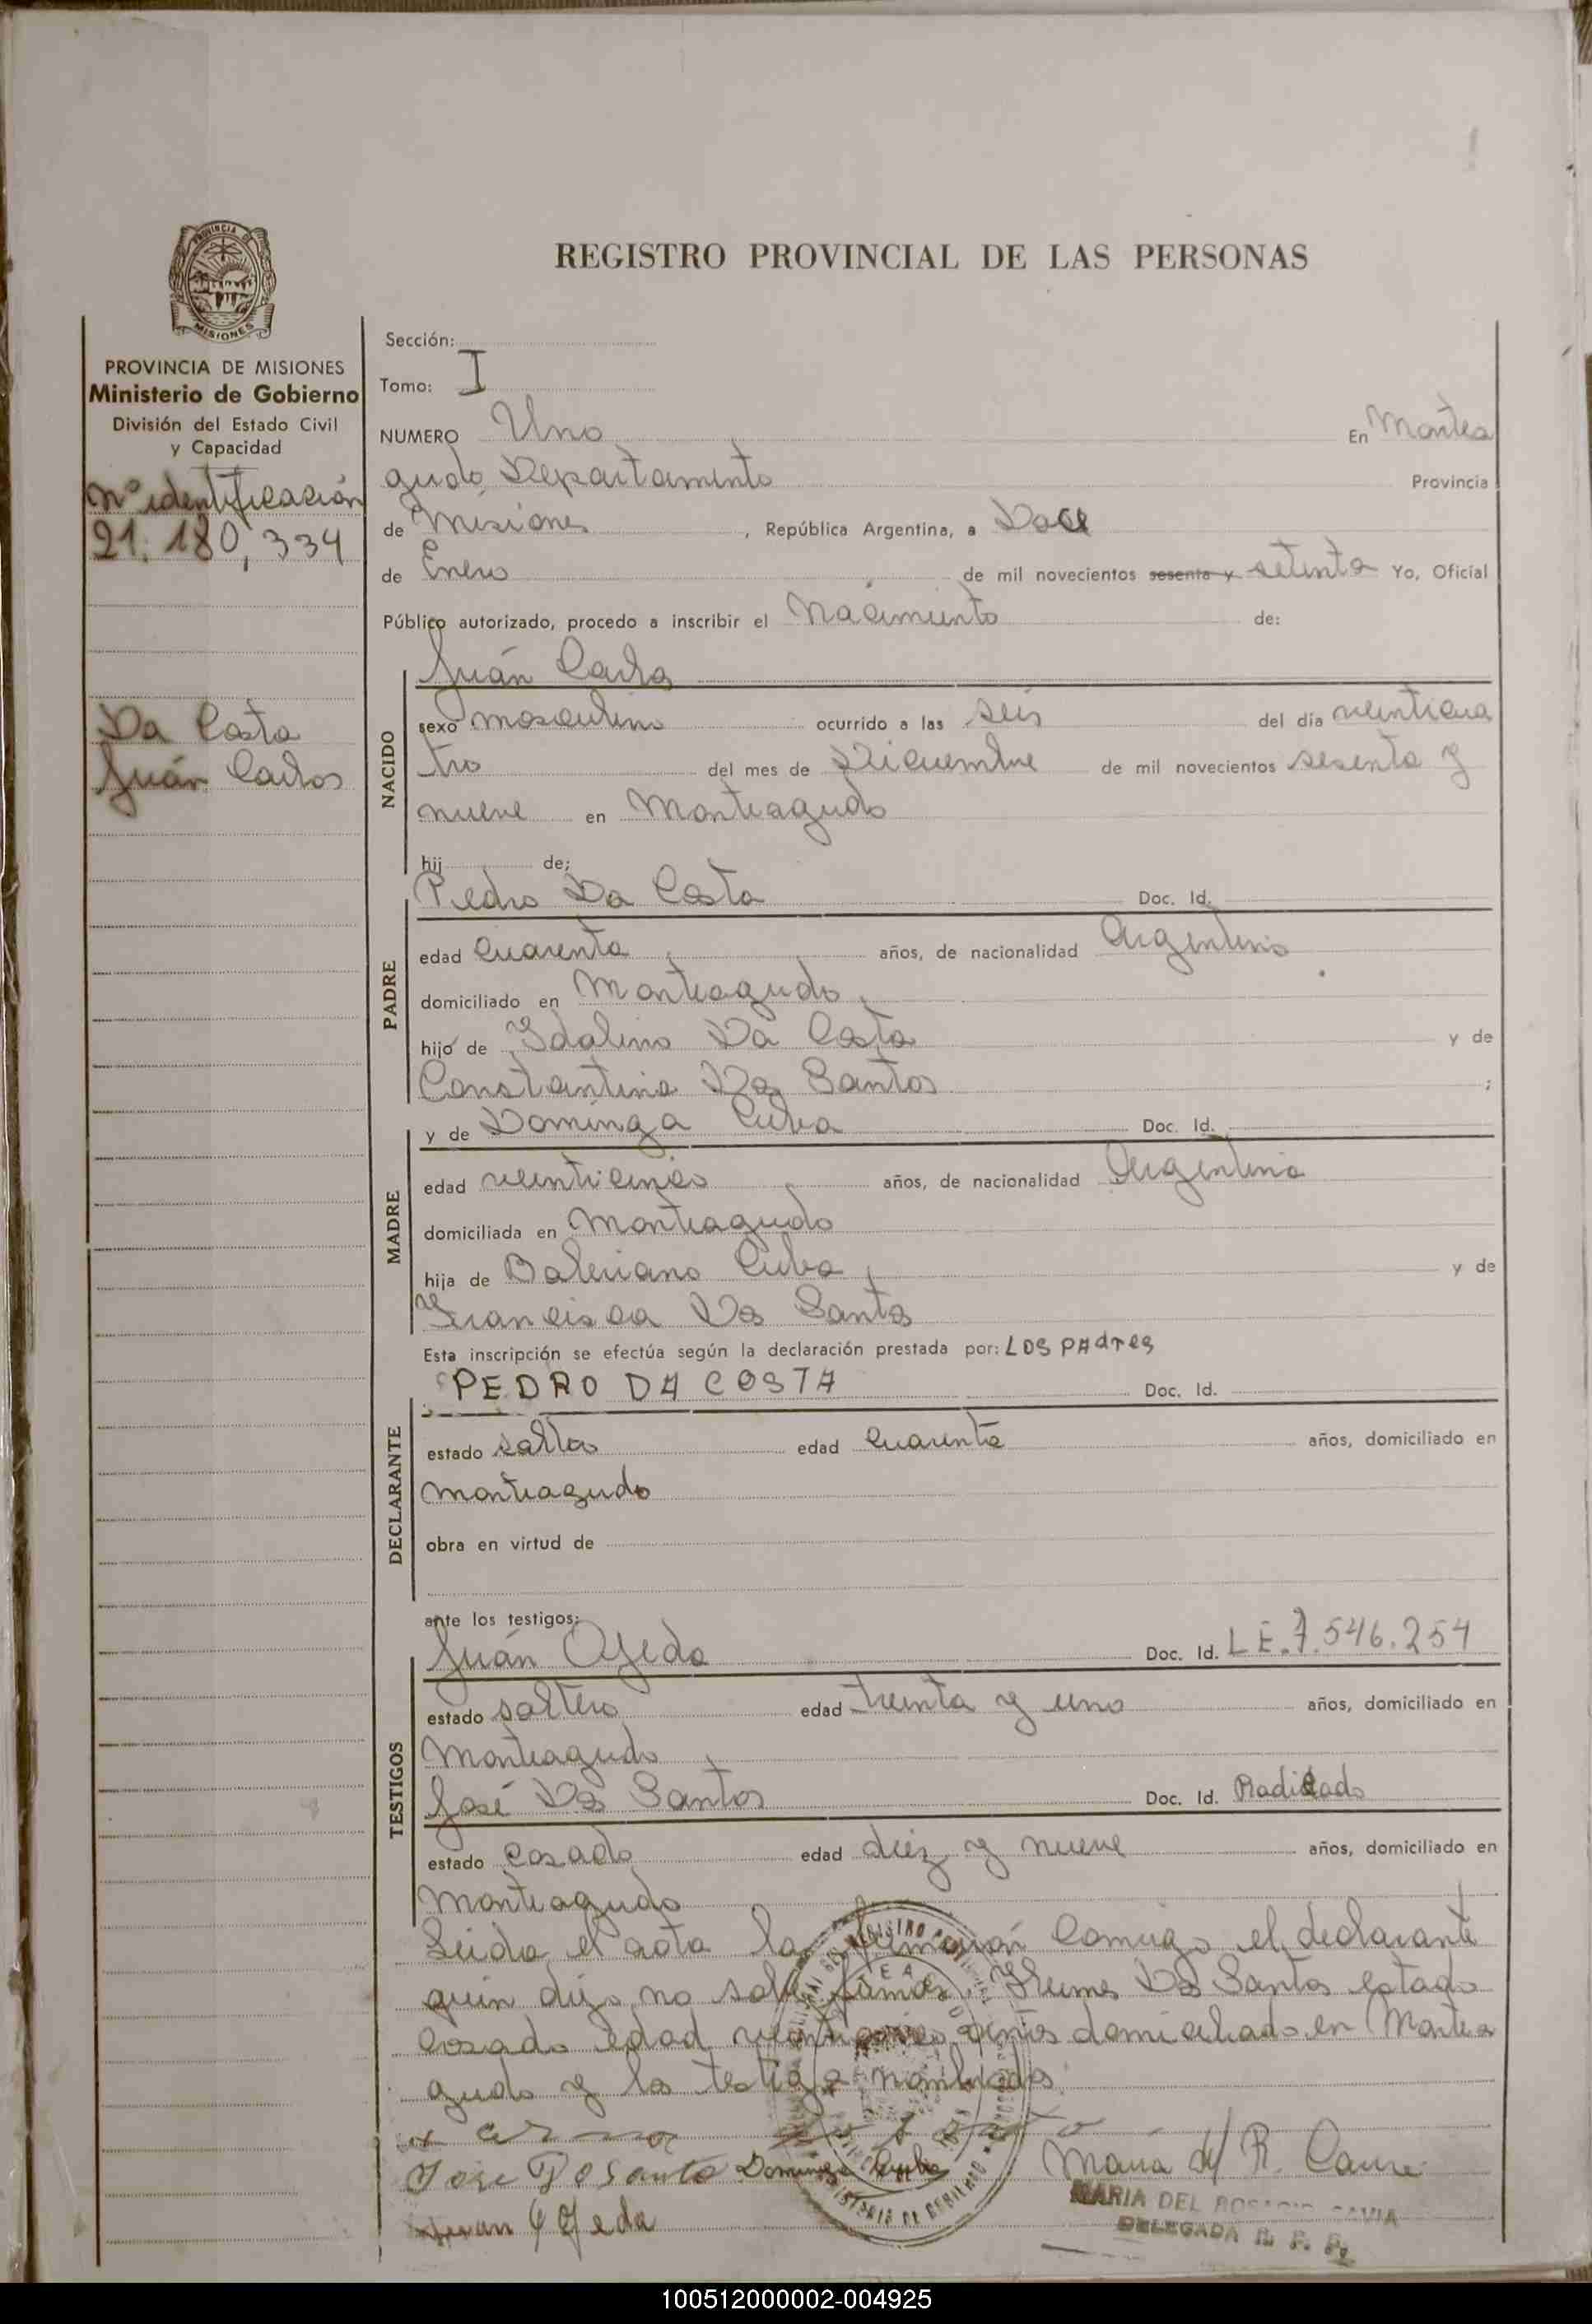 PROVINCIA DE
MISIONES
PROVINCIA DE MISIONES
Ministerio de Gobierno
División del Estado Civil
y Capacidad
Nº identificación
21.180,334
Da Costa
Juán Carlos
REGISTRO PROVINCIAL DE LAS PERSONAS
Sección:
Tomo: I
NUMERO Uno En Montea
gudo, Departamento Provincia
de Misiones, República Argentina, a Doce
de Enero de mil novecientos sesenta y setenta Yo, Oficial
Público autorizado, procedo a inscribir el Nacimiento de:
NACIDO
Juán Carlos
sexo masculino ocurrido a las seis del día veinticua
tro del mes de Diciembre de mil novecientos sesenta y
nueve en Monteagudo
hij de;
PADRE
Pedro Da Costa Doc. Id.
edad cuarenta años, de nacionalidad Argentino
domiciliado en Monteagudo
hijo de Idalino Da Costa y de
Constantina Dos Santos ;
MADRE
y de Dominga Cuba Doc. Id.
edad veinticinco años, de nacionalidad Argentina
domiciliada en Monteagudo
hija de Baleriano Cuba y de
Francisca Dos Santos
Esta inscripción se efectúa según la declaración prestada por: LOS PAdres
DECLARANTE
PEDRO DA COSTA Doc. Id.
estado soltero edad cuarenta años, domiciliado en
Monteagudo
obra en virtud de
ante los testigos:
TESTIGOS
Juán Ojeda Doc. Id. LE.7.546.254
estado soltero edad treinta y uno años, domiciliado en
Monteagudo
José Dos Santos Doc. Id. Radicado
estado casado edad diez y nueve años, domiciliado en
Monteagudo
Leida el acta la firmarón comigo el declarante
quien dijo no saber firmar, Dos Santos estado
casado edad años domiciliado en Montea
gudo y los testigos nombrados
Jose Do Santo Dominga Cuba María d/ R. Cavia
Juan Ojeda
MARIA DEL ROSARIO CAVIA
DELEGADA R. P. P.
100512000002-004925